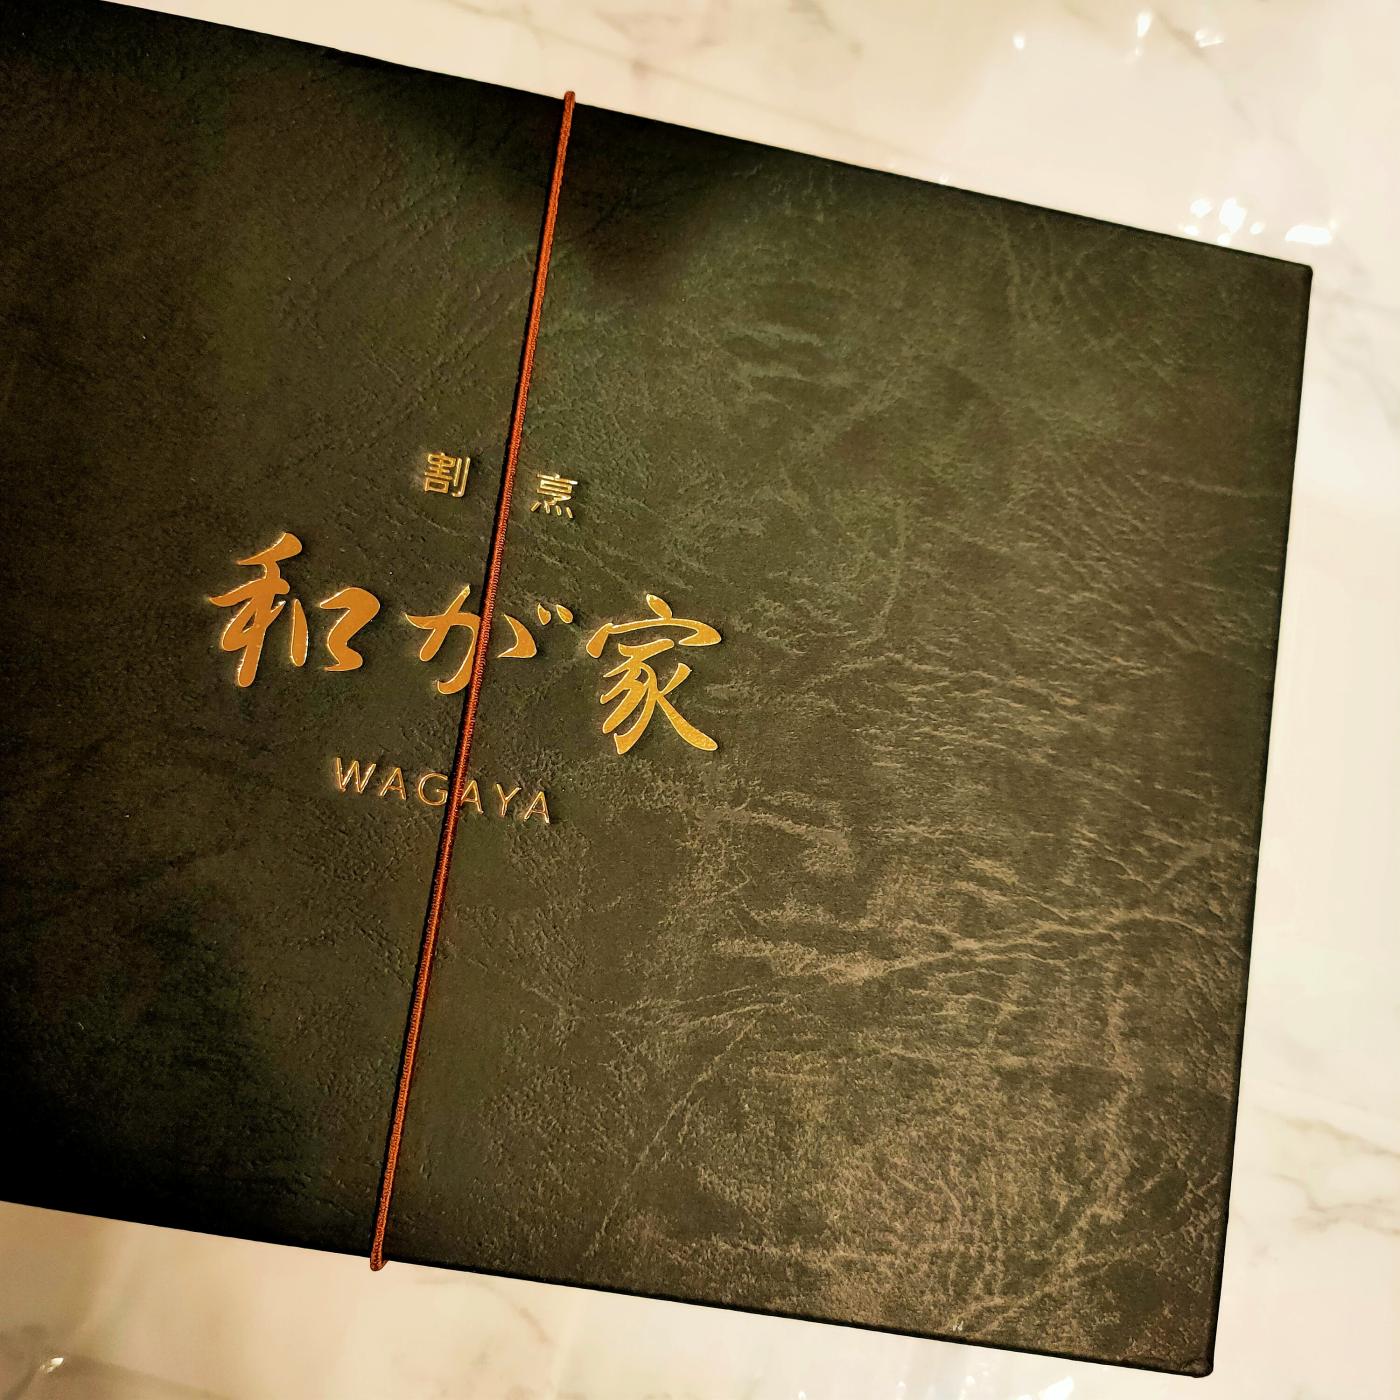 割烹
和が家
WAGAYA